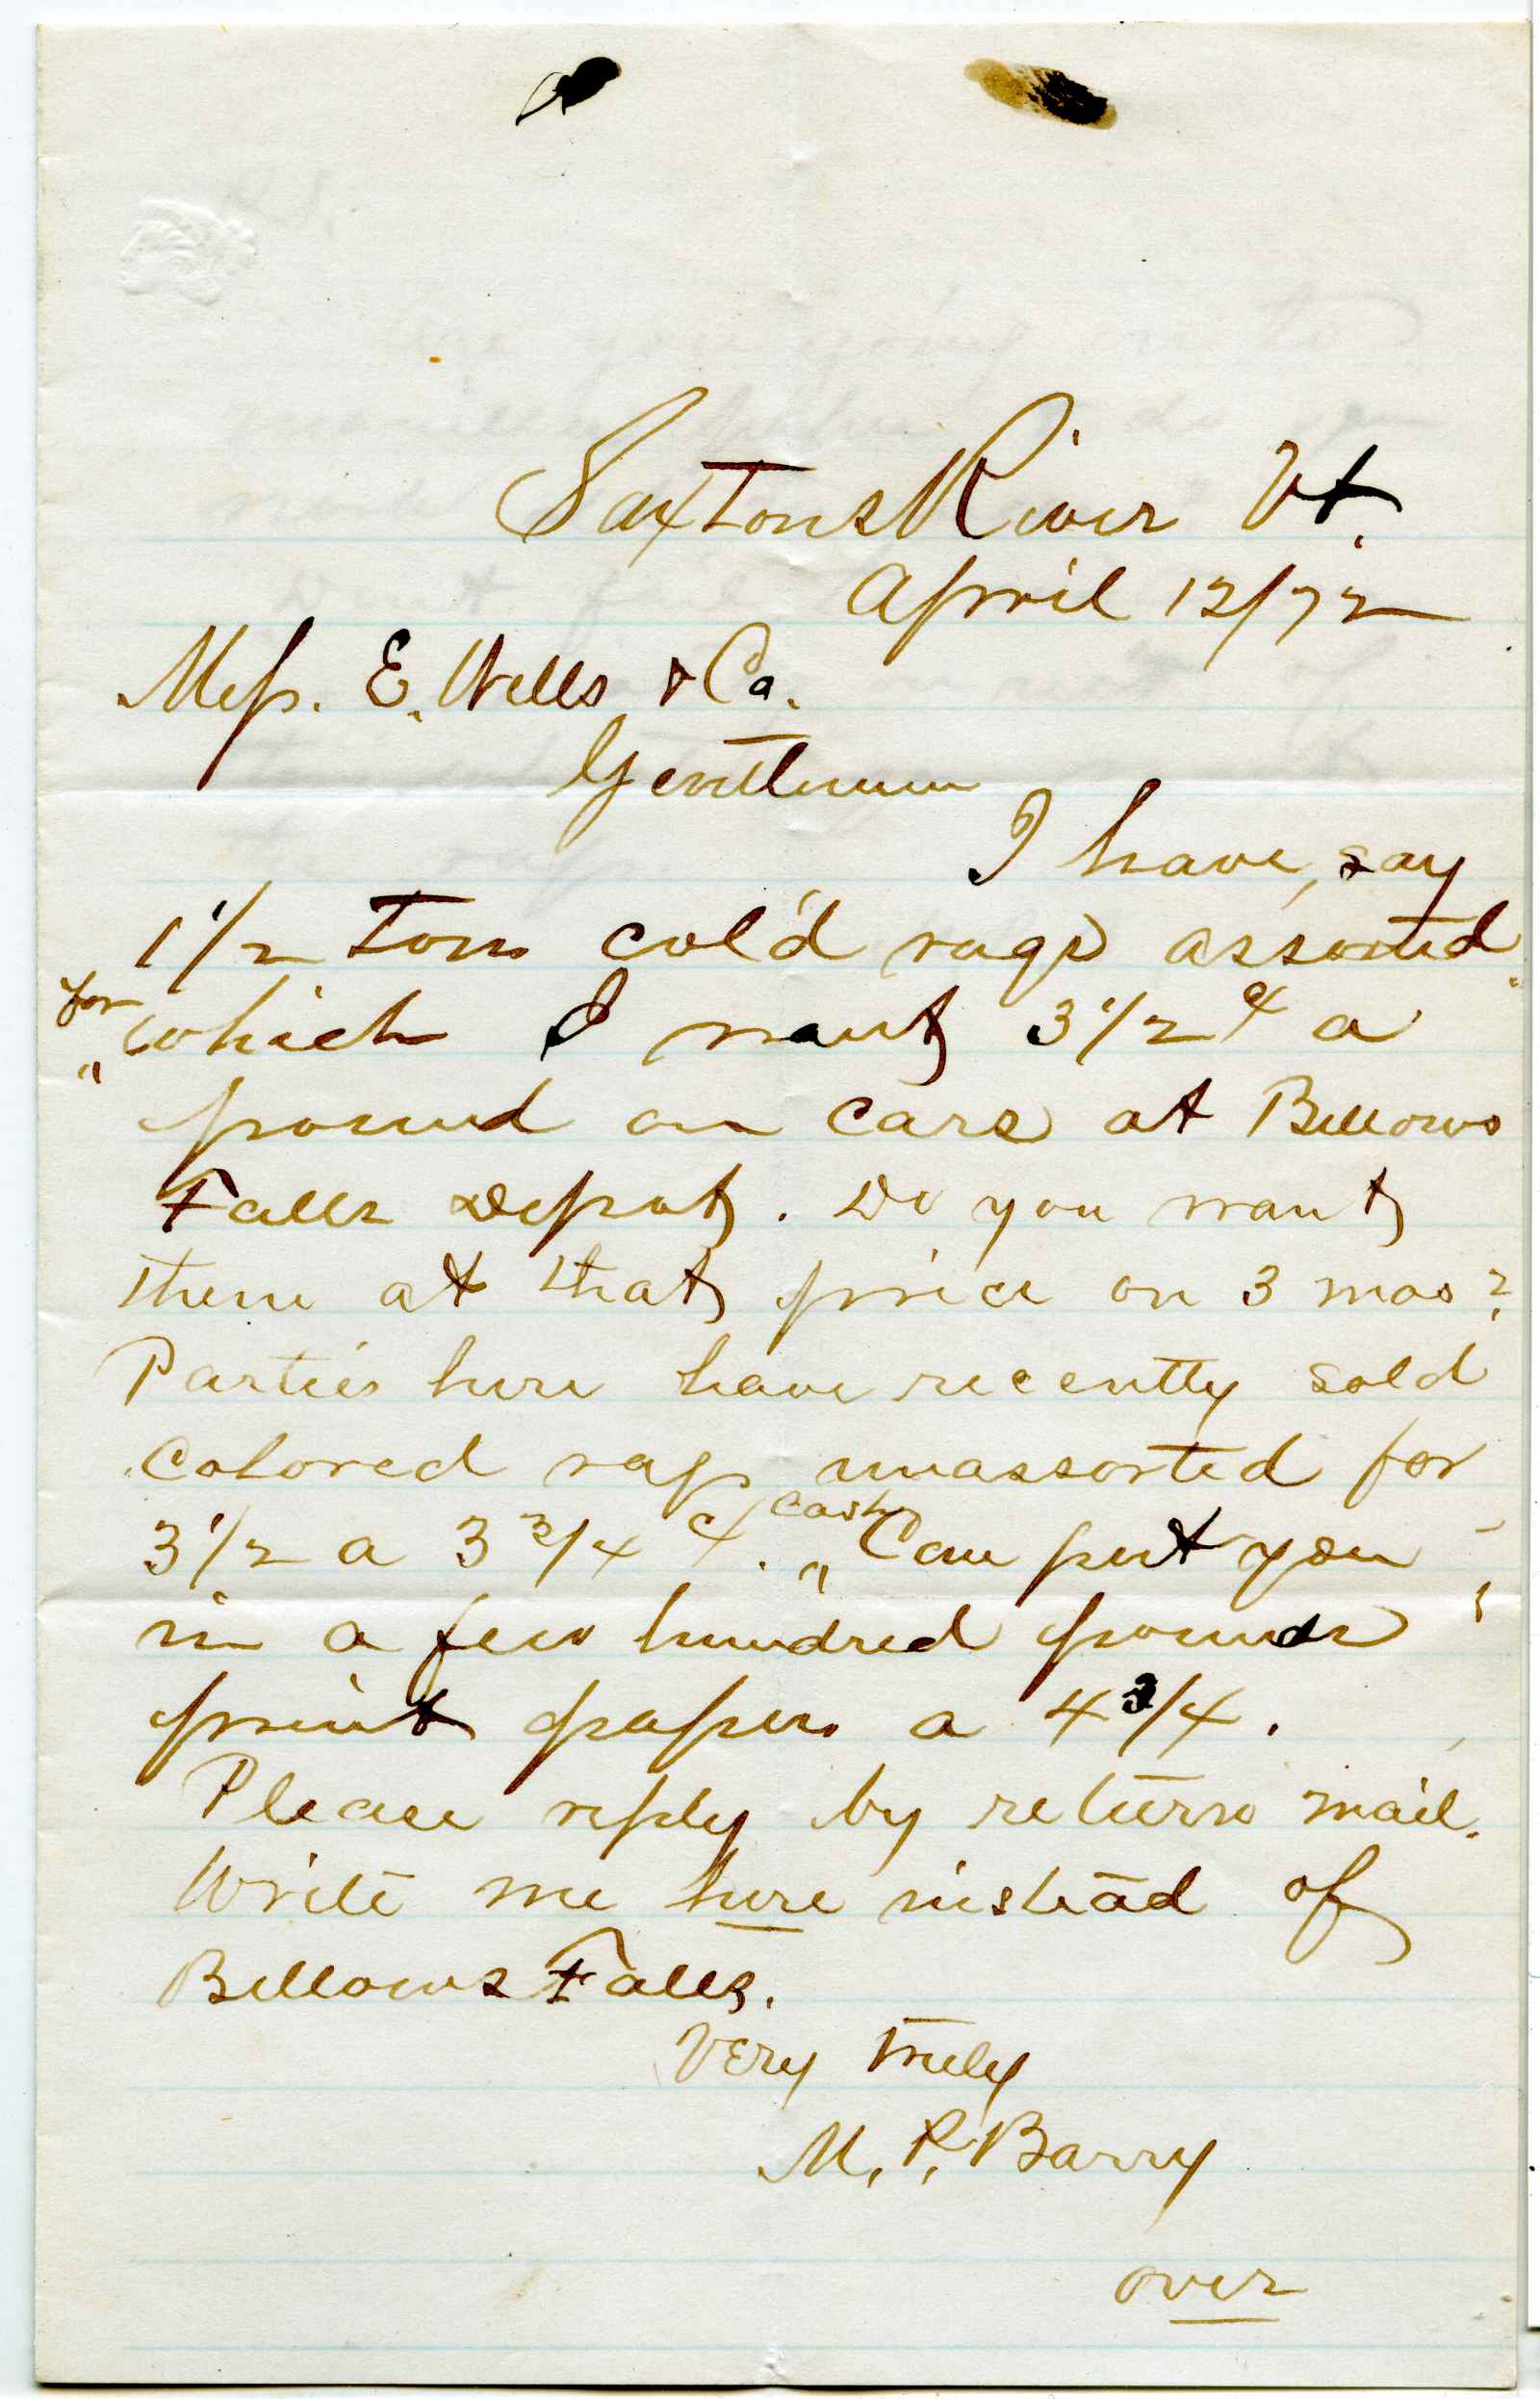 Saxtons River Vt.
April 12/72
Mess. E. Wells & Co.
Gentlemen
I have, say
1 1/2 Tons col'd rags assorted
for
which I want 3 1/2 ¢ a
pound on cars at Bellows
Falls Depot. Do you want
them at that price on 3 mos?
Parties here have recently sold
colored rags unassorted for
cash
3 1/2 a 3 3/4 ¢. Can put you
in a few hundred pounds
print papers a 4 3/4.
Please reply by return mail.
Write me here instead of
Bellows Falls.
Very truly
M. P. Barry
over